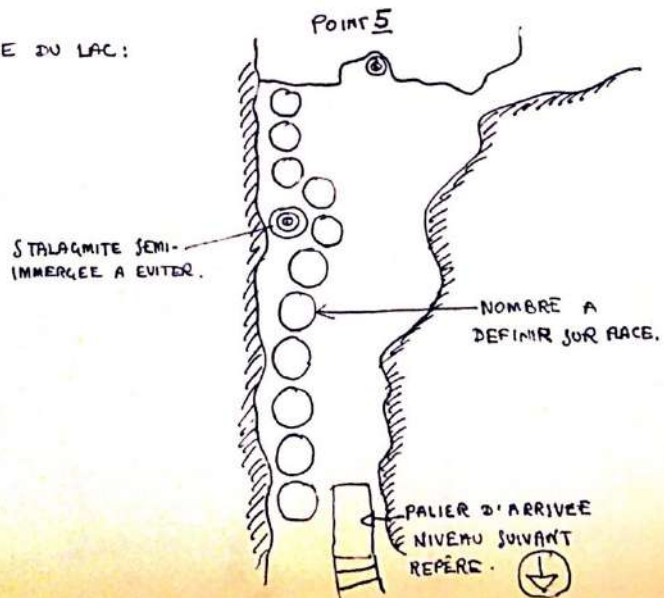 POINT 5
E DU LAC:
STALAGMITE SEMI-
IMMERGEE A EVITER.
NOMBRE A
DEFINIR SUR PLACE.
PALIER D'ARRIVEE
NIVEAU SUIVANT
REPÈRE.